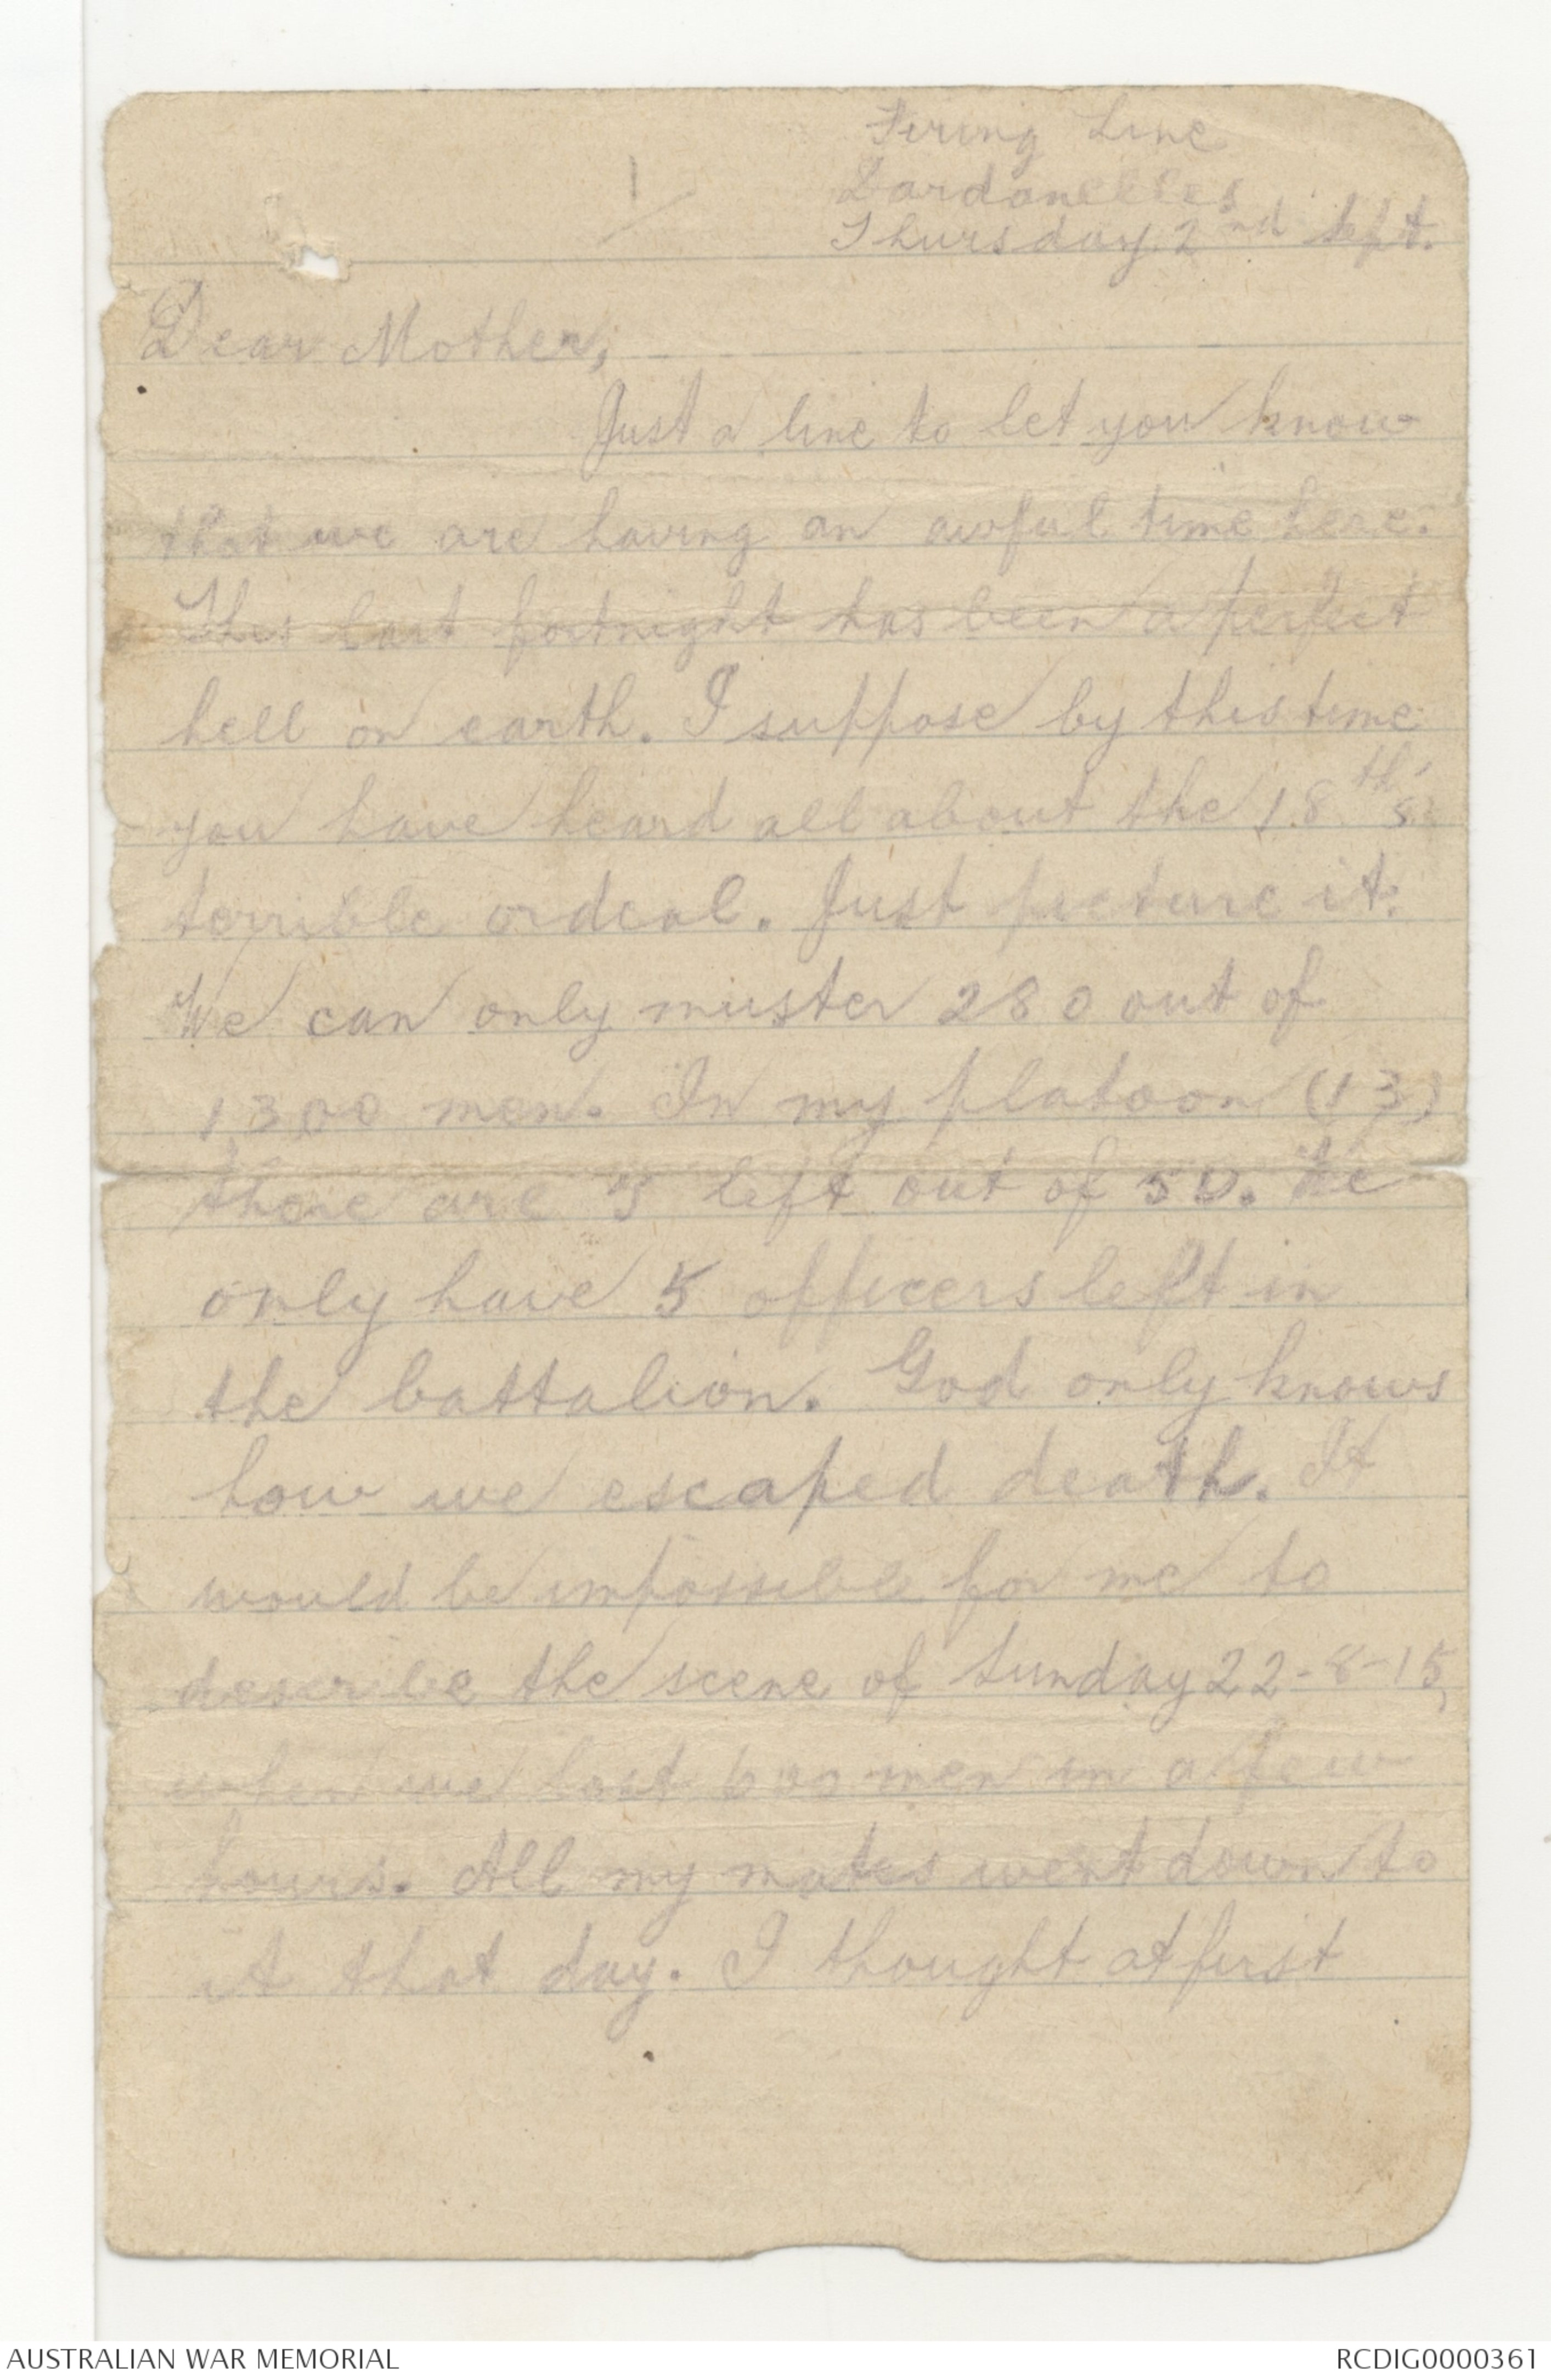 1/
Firing Line
Dardanelles
Thursday 2nd Sept.
Dear Mother,
Just a line to let you know
that we are having an awful time here.
This last fortnight has been a perfect
hell on earth. I suppose by this time
you have heard all about the 18th's
terrible ordeal. Just picture it.
We can only muster 280 out of
1,300 men. In my platoon (13)
there are left out of 50. We
only have 5 officers left in
the battalion. God only knows
how we escaped death. It
would be impossible for me to
describe the scene of Sunday 22-8-15,
when we lost 600 men in a few
hours. All my mates went down to
it that day. I thought at first
AUSTRALIAN WAR MEMORIAL
RCDIG0000361